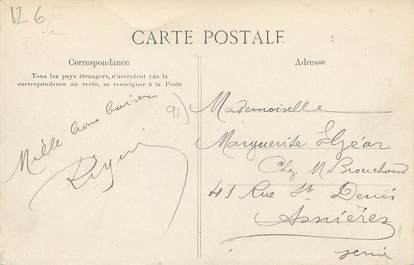 126
CARTE POSTALE
Correspondance
Tous les pays étrangers, n'acceptent pas la
correspondance au recto, se renseigner à la Poste
Mille bons baisers
91)
Adresse
Mademoiselle
Marguerite
Chez M. Brouchoud
41 Rue St Denis
Asnières
Seine